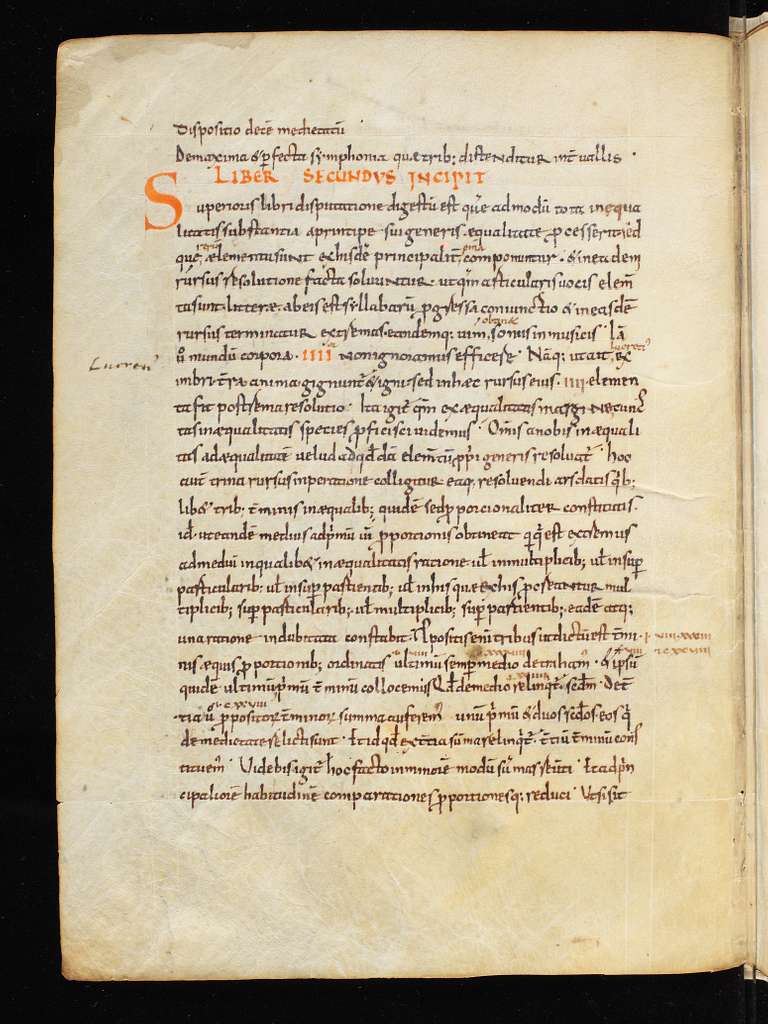 Dispositio decē medietatū
De maxima & pfecta symphonia quę trib; distenditur int̄uallis .
LIBER SECUNDVS INCIPIT
Superioris libri disputatione digestū est quę admodū tota inęqua
litatis substantia a principe sui generis ęqualitate pcesserit. Sed
quę rerū ęlementa sunt ex hisdē principalit̄ omnia componuntur . & in eadem
rursus resolutione facta soluuntur. ut qm̄ articularis uocis elem̄
ta sunt litterę. ab eis est syllabarū pgressa coniunctio & in easdē
rursus terminatur extremas. eandemq; uim obtinet sonus in musicis . Iā
ū mundū corpora . IIII non ignoramus efficere . Nāq; ut ait . Ex
Lucreti
imbri t̄ra anima gignunt̄ & igni sed in hęc rursus eius . IIII elemen
ta fit postrema resolutio . Ita igit̄ qm̄ ex ęqualitatis margine cunc
tas inęqualitatis species pficisci uidemus . Om̄is a nobis inęquali
tas ad ęqualitatē uelud ad qd̄dā elem̄tū pprii generis resoluat̄ . hoc
aut̄ trina rursus inperatione colligitur eaq; resoluendi ars datis qb;
lib& trib; t̄minis inęqualib; quidē sed pporcionaliter constitutis .
id. ut eandē medius ad pmū uī pportionis obtineat q̄ q̄ est extremus
ad mediū in qualib& inęqualitatis ratione ut̄ in multiplicib; ut̄ in sup
particularib; ut̄ in sup partientib; ut̄ in his quę ex his pcreantur mul
tiplicib; sup particularib; ut̄ multiplicib; sup partientib; eadē atq;
una ratione indubitata constabit . Ppositis eni tribus ut dictū est t̄mi
nis ęquis pportionib; ordinatis ultimū semp medio detraham . & ipsū
quidē ultimū pmū t̄minū collocemus Qd̄ de medio relinqt̄ . scdm̄ . De t̄
tia ū ppositorū t̄minorū summa auferem . unū pmū & duos scdos. eos q̄
de medietate relicti sunt . Et id qd̄ ex t̄tia sūma relinqt̄ . t̄tiū t̄minū cons
tituem . Uidebis igit̄ hoc facto in minorē modū sūmas reuti . Et ad pn
cipaliorē habitudinē comparationes pportionesq; reduci . Ut si sit